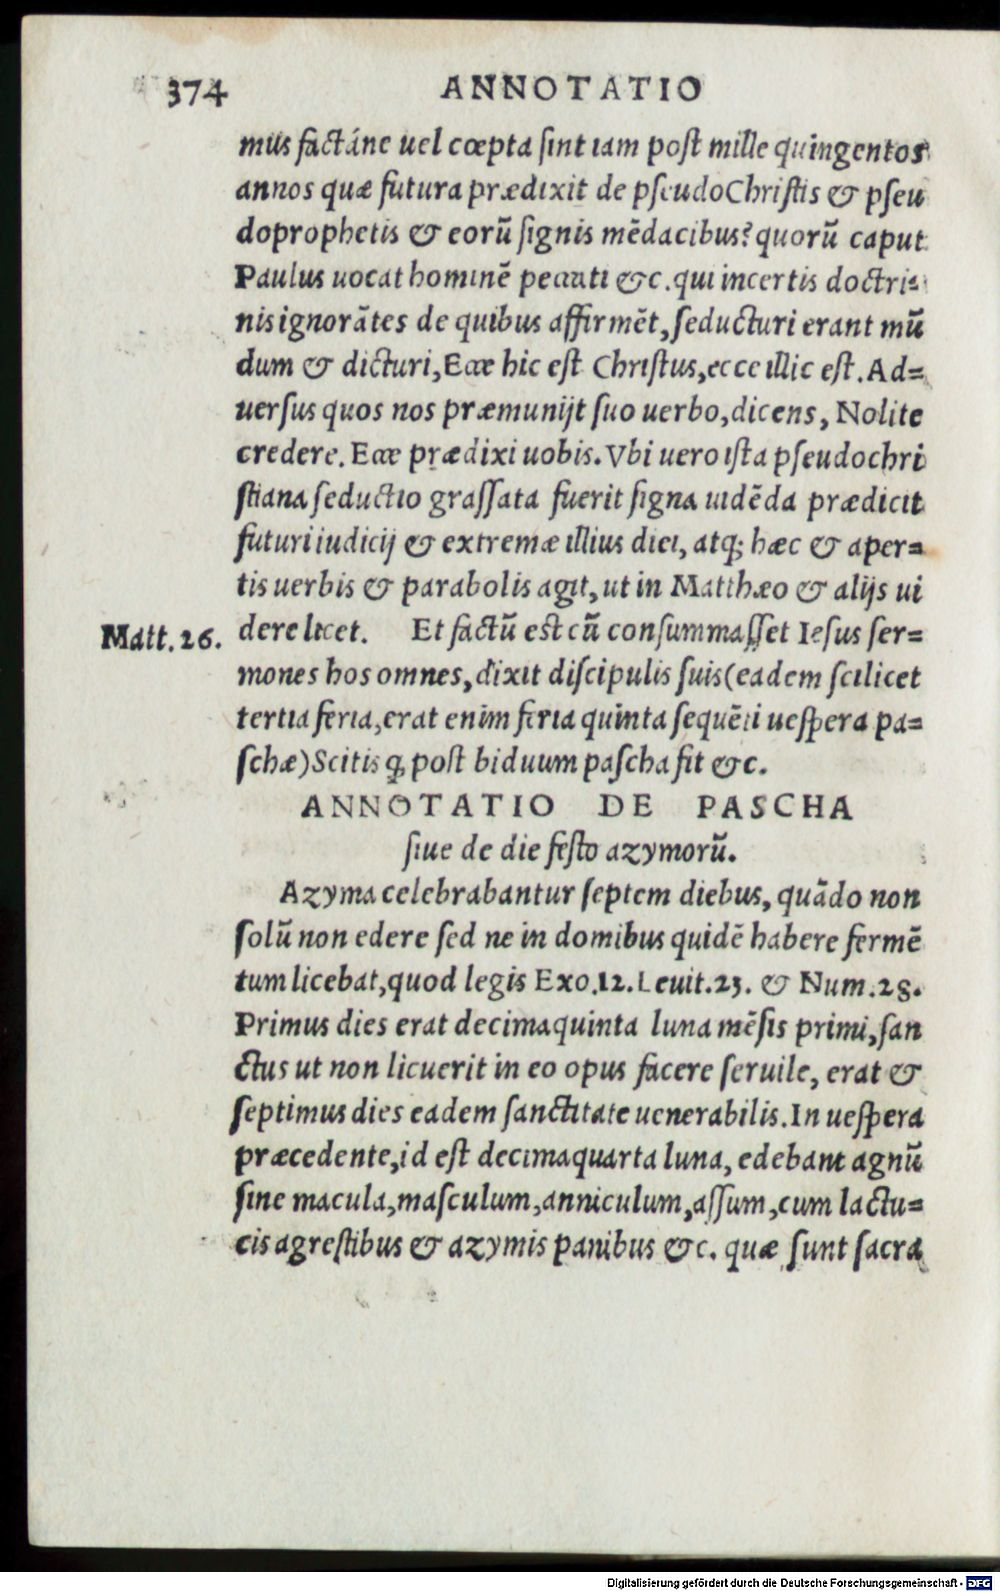 374 ANNOTATIO
mus factáne uel cœpta ſint iam poſt mille quingentos
annos quæ futura prædixit de pſeudoChriſtis & pſeu
doprophetis & eorũ ſignis mẽdacibus? quorũ caput
Paulus uocat hominẽ peccati &c. qui incertis doctri=
nis ignorãtes de quibus affirmẽt, ſeducturi erant mũ
dum & dicturi, Ecce hic eſt Chriſtus, ecce illic eſt. Ad=
uerſus quos nos præmunijt ſuo uerbo, dicens, Nolite
credere. Ecce prædixi uobis. Vbi uero iſta pſeudochri
ſtiana ſeductio graſſata fuerit ſigna uidẽda prædicit
futuri iudicij & extremæ illius diei, atq; hæc & aper=
tis uerbis & parabolis agit, ut in Matthæo & alijs ui
Matt. 26. dere licet. Et factũ est cũ conſummaſſet Ieſus ſer=
mones hos omnes, dixit diſcipulis ſuis (eadem ſcilicet
tertia feria, erat enim feria quinta ſequẽti ueſpera pa=
ſchæ) Scitis ꝗ poſt biduum paſcha fit &c.
ANNOTATIO DE PASCHA
ſiue de die feſto azymorũ.
Azyma celebrabantur ſeptem diebus, quãdo non
ſolũ non edere ſed ne in domibus quidẽ habere fermẽ
tum licebat, quod legis Exo. 12. Leuit. 23. & Num. 28.
Primus dies erat decimaquinta luna mẽſis primi, ſan
ctus ut non licuerit in eo opus facere ſeruile, erat &
ſeptimus dies eadem ſanctitate uenerabilis. In ueſpera
præcedente, id eſt decimaquarta luna, edebant agnũ
ſine macula, maſculum, anniculum, aſſum, cum lactu=
cis agreſtibus & azymis panibus &c. quæ ſunt ſacra
Digitalisierung gefördert durch die Deutsche Forschungsgemeinschaft - DFG